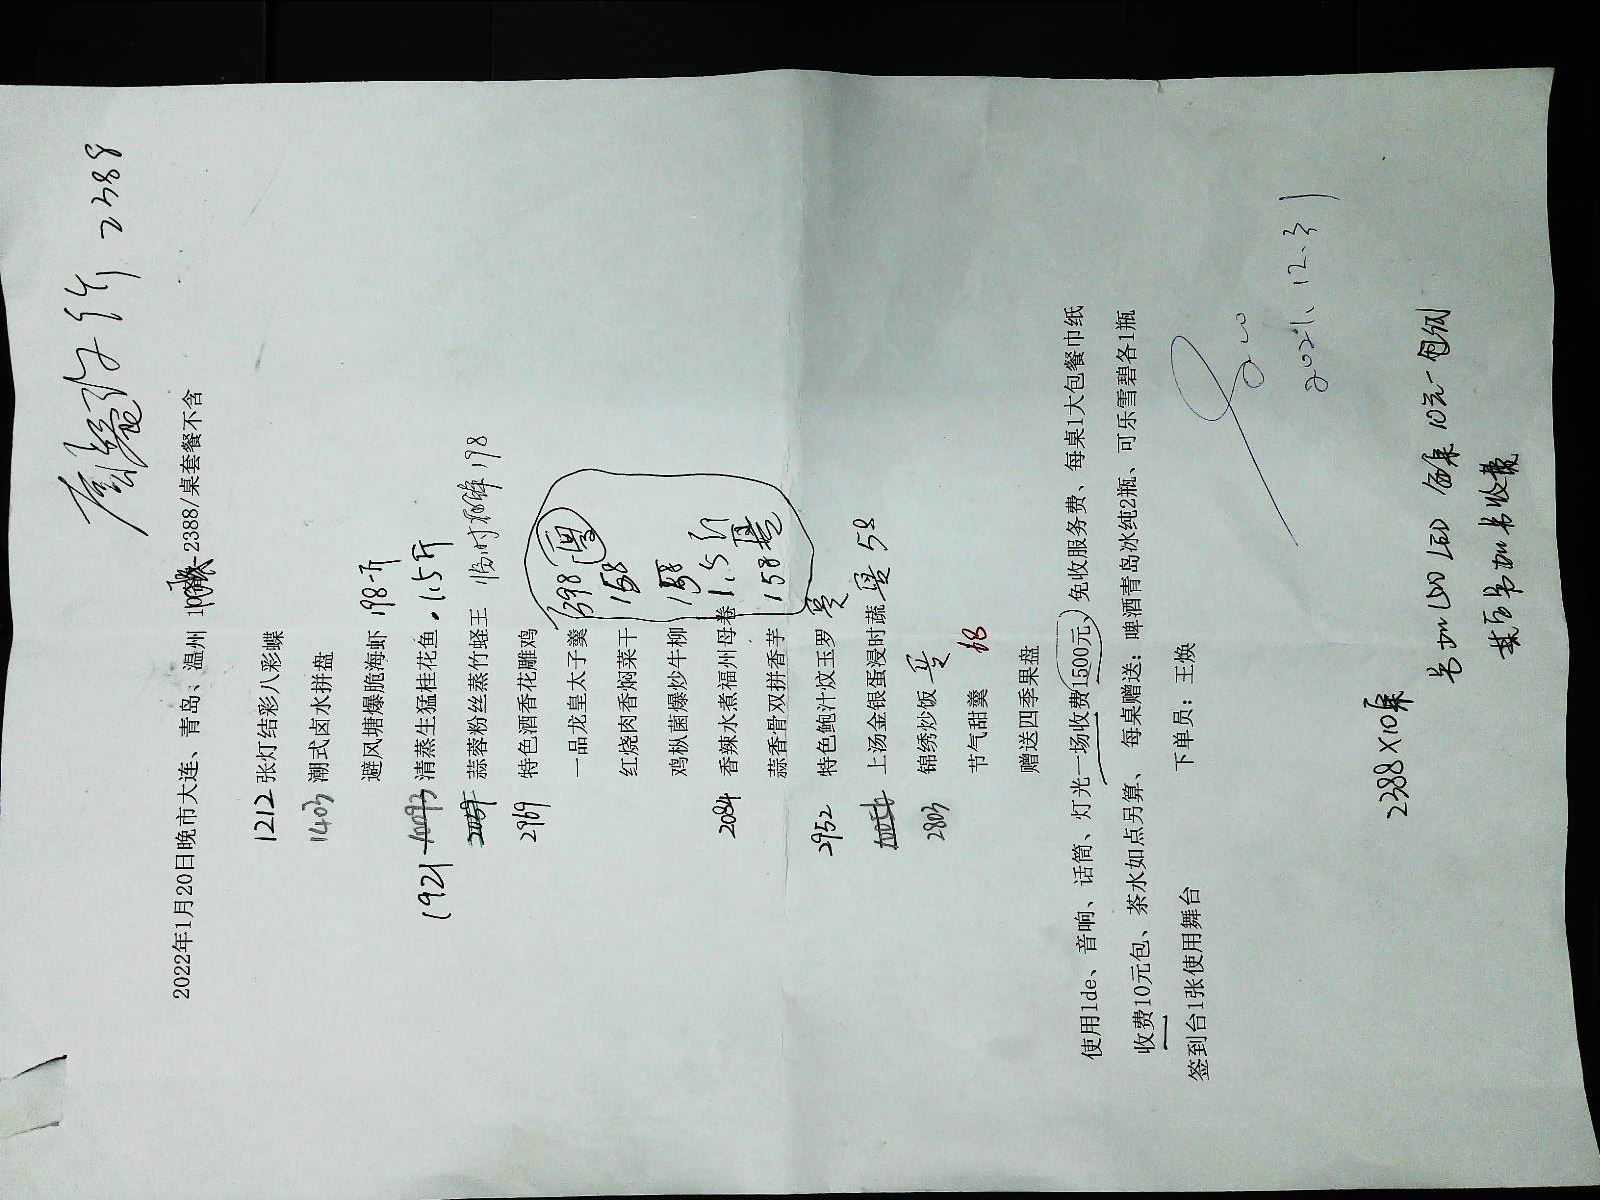 2388
2022年1月20日晚市大连、青岛、温州 -2388/桌套餐不含
1212 张灯结彩八彩蝶
1403 潮式卤水拼盘
避风塘爆脆海虾 198-斤
1921 清蒸生猛桂花鱼 1.5斤
蒜蓉粉丝蒸竹蛏王 178
2969 特色酒香花雕鸡
一品龙皇太子羹 398
红烧肉香焖菜干 158
鸡枞菌爆炒牛柳 158
2084 香辣水煮福州母卷 1.5斤
蒜香骨双拼香芋 158
2952 特色鲍汁炆玉罗
上汤金银蛋浸时蔬 58
2803 锦绣炒饭
节气甜羹
赠送四季果盘
使用lde、音响、话筒、灯光一场收费1500元、免收服务费、每桌1大包餐巾纸
收费10元包、茶水如点另算、 每桌赠送：啤酒青岛冰纯2瓶、可乐雪碧各1瓶
签到台1张使用舞台 下单员：王焕
2021.12.31
2388×10桌
LED 10元一包